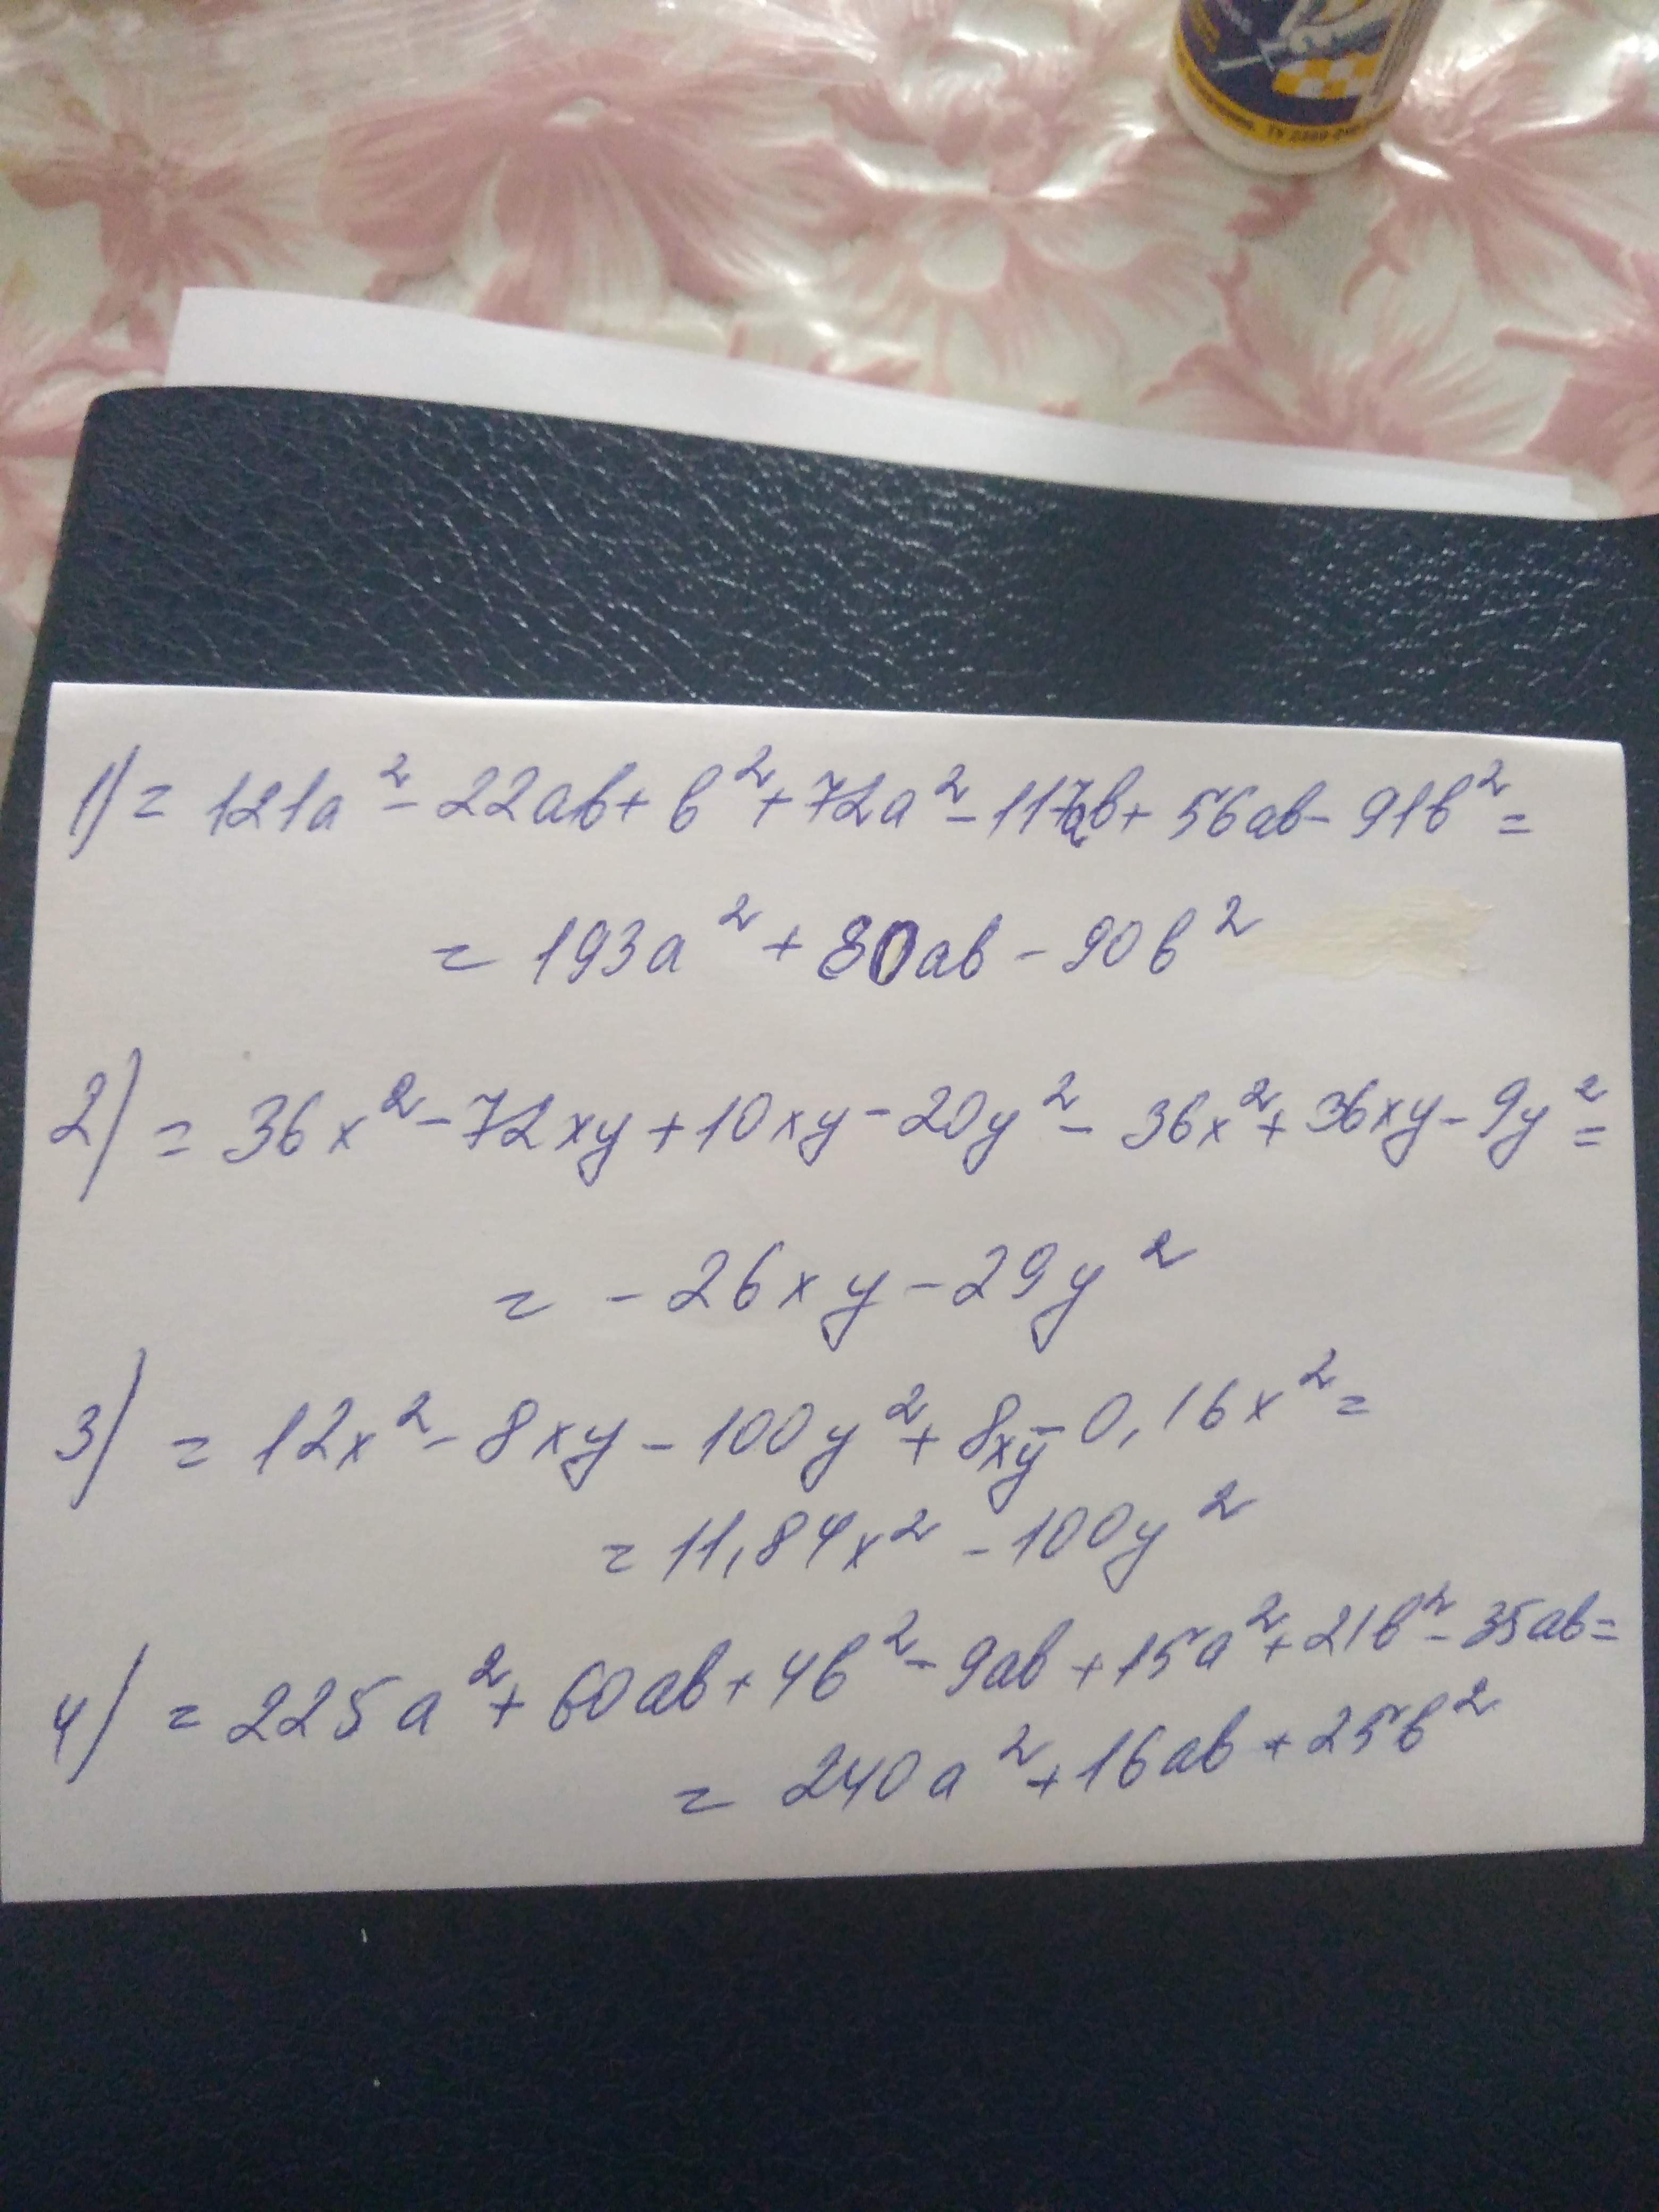 1) = 121a² - 22ab + b² + 72a² - 117ab + 56ab - 91b² =
= 193a² + 80ab - 90b²
2) = 36x² - 72xy + 10xy - 20y² - 36x² + 36xy - 9y² =
= - 26xy - 29y²
3) = 12x² - 8xy - 100y² + 8xy - 0,16x² =
= 11,84x² - 100y²
4) = 225a² + 60ab + 4b² - 9ab + 15a² + 21b² - 35ab =
= 240a² + 16ab + 25b²